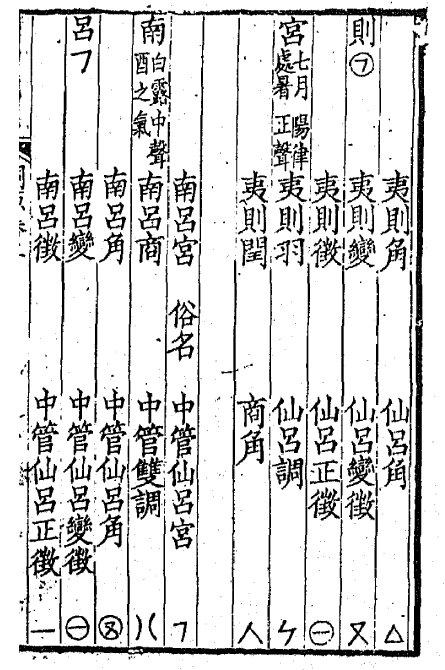 夷則角 仙呂角 △
則㋆ 夷則變 仙呂變徵 又
夷則徵 仙呂正徵 ㊀
宮 七月 陽律 處暑 正聲 夷則羽 仙呂調 ㄣ
夷則閏 商角 人
南呂宮 俗名 中管仙呂宮 ㄱ
南 白露 中聲 酉之氣 南呂商 中管雙調 八
南呂角 中管仙呂角
呂ㄱ 南呂變 中管仙呂變徵 ㊀
南呂徵 中管仙呂正徵 一